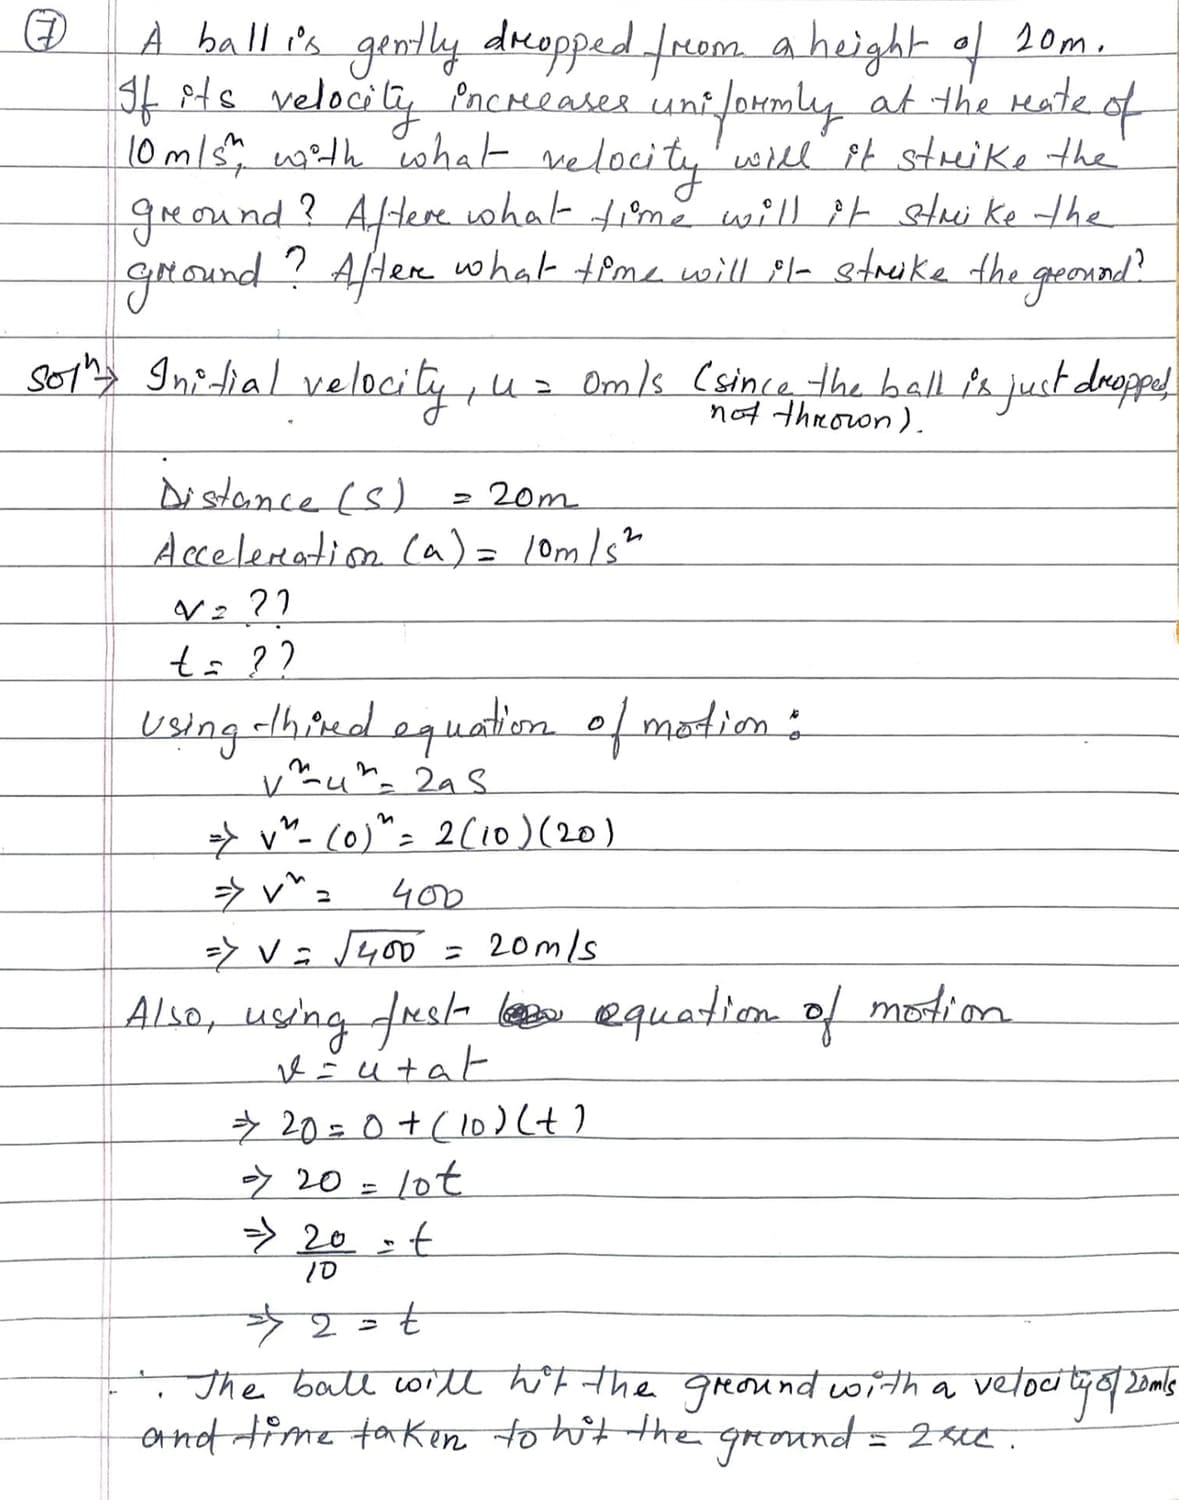 7 A ball is gently dropped from a height of 20m.
If its velocity increases uniformly at the rate of
10 m/s², with what velocity will it strike the
ground? After what time will it strike the
ground? After what time will it strike the ground?
Solⁿ→ Initial velocity, u = 0m/s (since the ball is just dropped,
not thrown).
Distance (s) = 20m
Acceleration (a) = 10m/s²
v = ??
t = ??
Using third equation of motion :
v² - u² = 2as
⇒ v² - (0)² = 2(10)(20)
⇒ v² = 400
⇒ v = √400 = 20m/s
Also, using frst equation of motion
v = u + at
⇒ 20 = 0 + (10)(t)
⇒ 20 = 10t
⇒ 20/10 = t
⇒ 2 = t
∴ The ball will hit the ground with a velocity of 20m/s
and time taken to hit the ground = 2 sec.